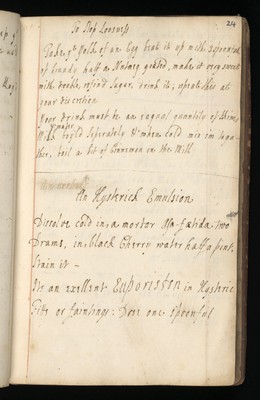 24
To Stop Loosness
Take ye Yolk of an Egg beat it up with 2 spoonfuls
of brandy half a Nutmeg grated, make it very sweet
with double refin'd Sugar, drink it, repeat this at
your discretion
Your Drink must be an equal quantity of
Milk & water boyld seperately & when cold mix em toge
=ther, boil a bit of Cinnemon in the Milk
An Hysterick Emulsion
Dissolve cold in, a mortar Assa-fætida, two
Drams, in, black Cherry water half a pint,
Strain it –
Its an exellent Euporiston in Hysteric
Fits or faintings: Dose one spoonful